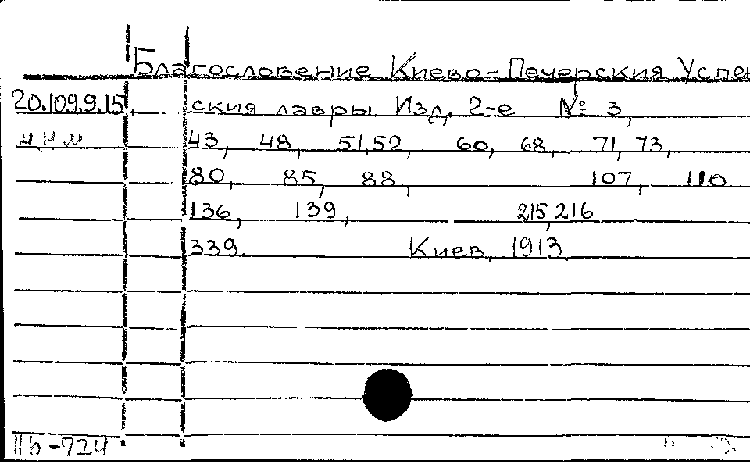 Благословение Киево-Печерския Успен
20.109.9.15 ския лавры. Изд. 2-е № 3,
43, 48, 51,52, 60, 68, 71, 73,
80, 85, 88, 107, 110
136, 139, 215,216
339. Киев, 1913.
Пб-724